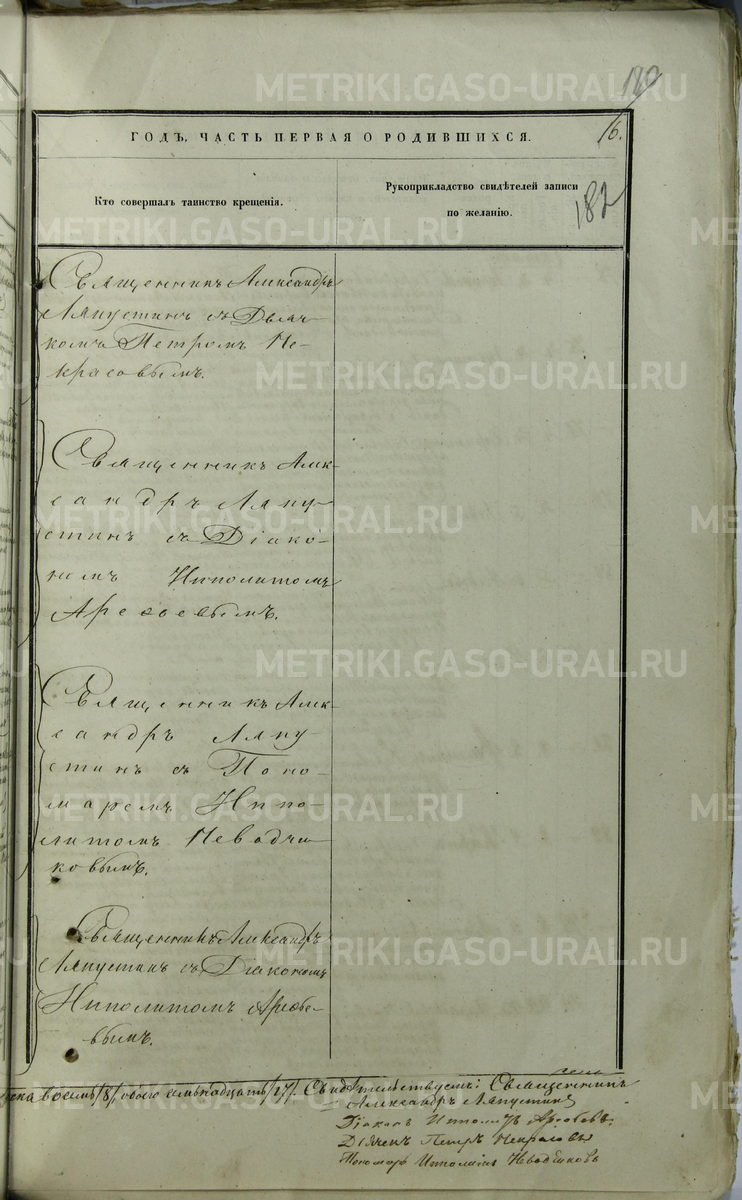 180
ГОДЪ, ЧАСТЬ ПЕРВАЯ О РОДИВШИХСЯ.
16.
Кто совершалъ таинство крещенія.
Рукоприкладство свидѣтелей записи
по желанію.
182
Священникъ Александръ
Ляпустинъ съ Дьяч-
комъ Петромъ Не-
красовымъ.
Священникъ Алек-
сандръ Ляпу-
стинъ съ Діако-
номъ Иполитомъ
Арефьевымъ.
Священникъ Алек-
сандръ Ляпу-
стинъ съ Поно-
маремъ Иппо-
литомъ Неводчи-
ковымъ.
Священникъ Александръ
Ляпустинъ съ Діакономъ
Ипполитомъ Арефье-
вымъ.
восемь /8/ обоего семьнадцать /17/. Свидѣтельствуемъ: Священникъ
Александръ Ляпустинъ
Діаконъ Иполитъ Арефьевъ
Дьячекъ Петръ Некрасовъ
Пономарь Ипполитъ Неводчиковъ
METRIKI.GASO-URAL.RU